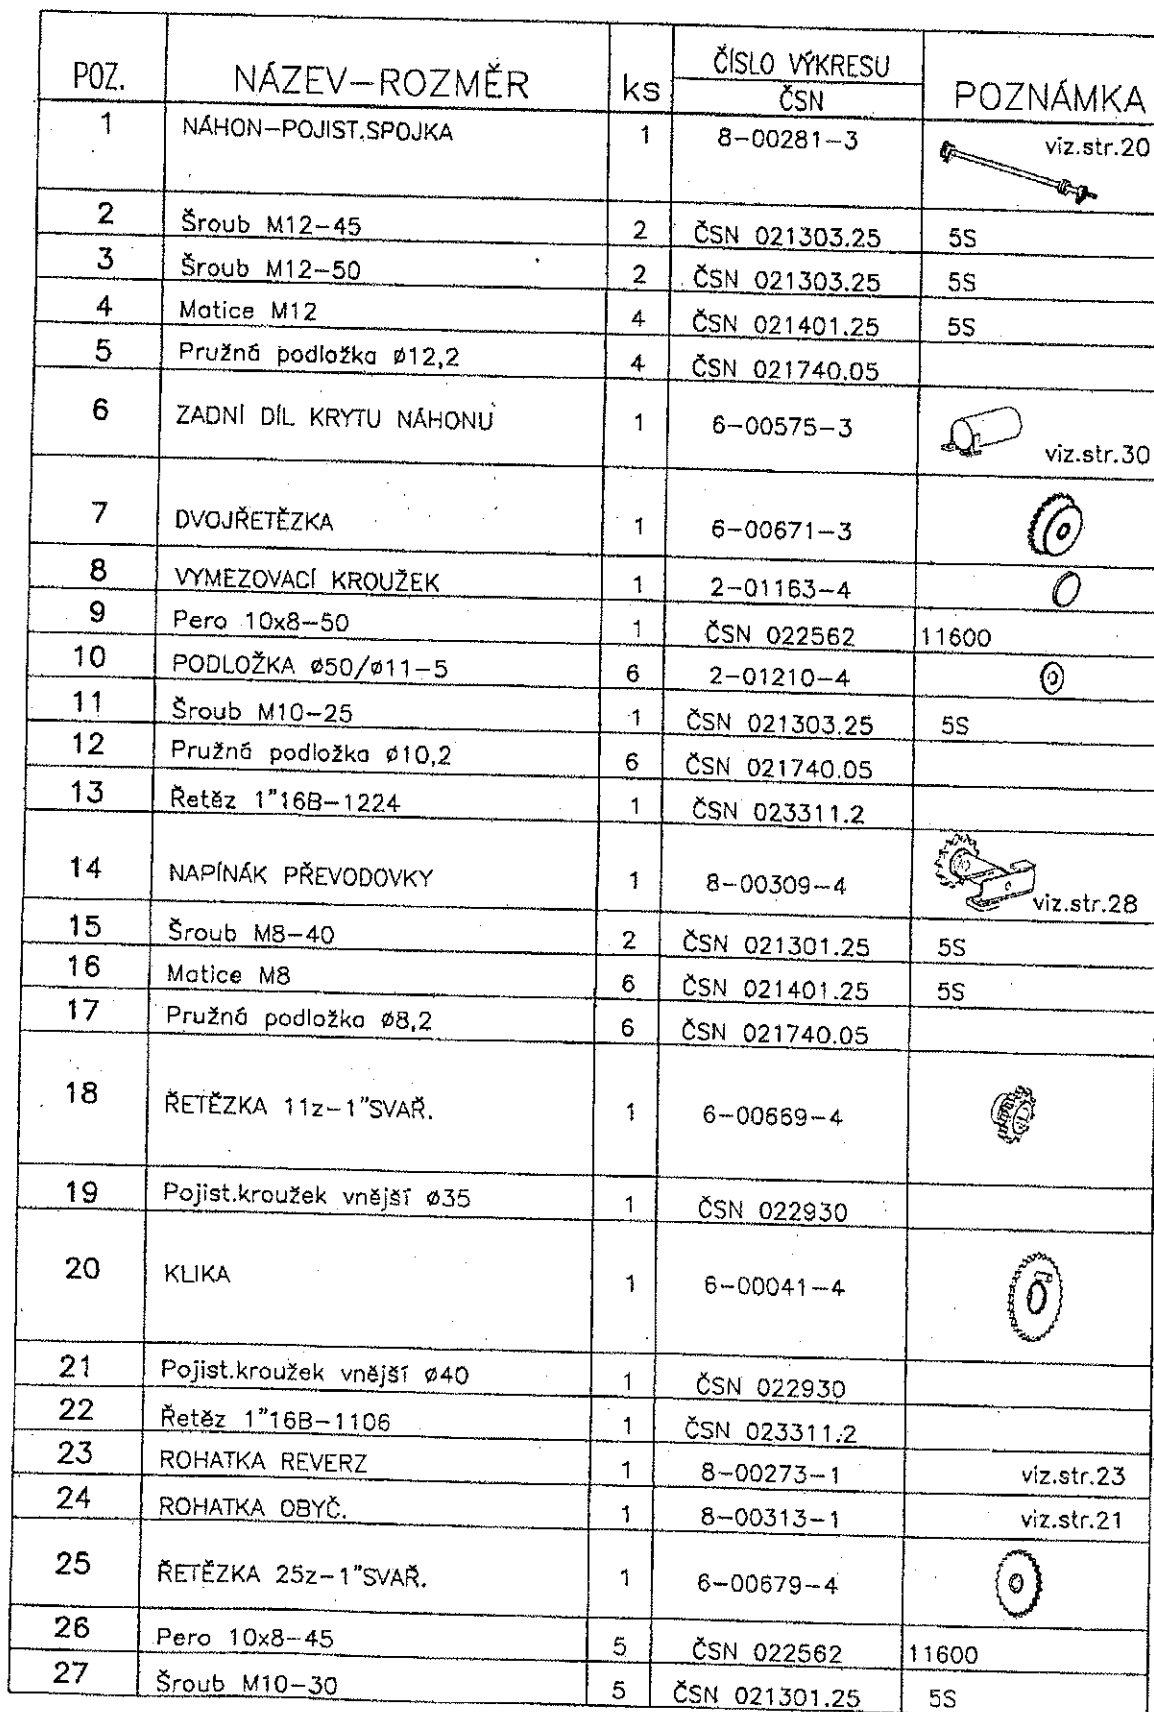 POZ. NÁZEV-ROZMĚR ks ČÍSLO VÝKRESU ČSN POZNÁMKA
1 NÁHON-POJIST.SPOJKA 1 8-00281-3 viz.str.20
2 Šroub M12-45 2 ČSN 021303.25 5S
3 Šroub M12-50 2 ČSN 021303.25 5S
4 Matice M12 4 ČSN 021401.25 5S
5 Pružná podložka ø12,2 4 ČSN 021740.05
6 ZADNÍ DÍL KRYTU NÁHONU 1 6-00575-3 viz.str.30
7 DVOJŘETĚZKA 1 6-00671-3
8 VYMEZOVACÍ KROUŽEK 1 2-01163-4
9 Pero 10x8-50 1 ČSN 022562 11600
10 PODLOŽKA ø50/ø11-5 6 2-01210-4
11 Šroub M10-25 1 ČSN 021303.25 5S
12 Pružná podložka ø10,2 6 ČSN 021740.05
13 Řetěz 1"16B-1224 1 ČSN 023311.2
14 NAPÍNÁK PŘEVODOVKY 1 8-00309-4 viz.str.28
15 Šroub M8-40 2 ČSN 021301.25 5S
16 Matice M8 6 ČSN 021401.25 5S
17 Pružná podložka ø8,2 6 ČSN 021740.05
18 ŘETĚZKA 11z-1"SVAŘ. 1 6-00669-4
19 Pojist.kroužek vnější ø35 1 ČSN 022930
20 KLIKA 1 6-00041-4
21 Pojist.kroužek vnější ø40 1 ČSN 022930
22 Řetěz 1"16B-1106 1 ČSN 023311.2
23 ROHATKA REVERZ 1 8-00273-1 viz.str.23
24 ROHATKA OBYČ. 1 8-00313-1 viz.str.21
25 ŘETĚZKA 25z-1"SVAŘ. 1 6-00679-4
26 Pero 10x8-45 5 ČSN 022562 11600
27 Šroub M10-30 5 ČSN 021301.25 5S